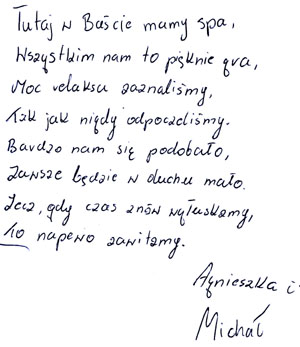 Tutaj w Baście mamy spa,
Wszystkim nam to pięknie gra,
Moc relaksu zaznaliśmy,
Tak jak nigdy odpoczeliśmy.
Bardzo nam się podobało,
Zawsze będzie w duchu mało.
Lecz, gdy czas znów wyłuskamy,
To napewno zawitamy.
Agnieszka i
Michał